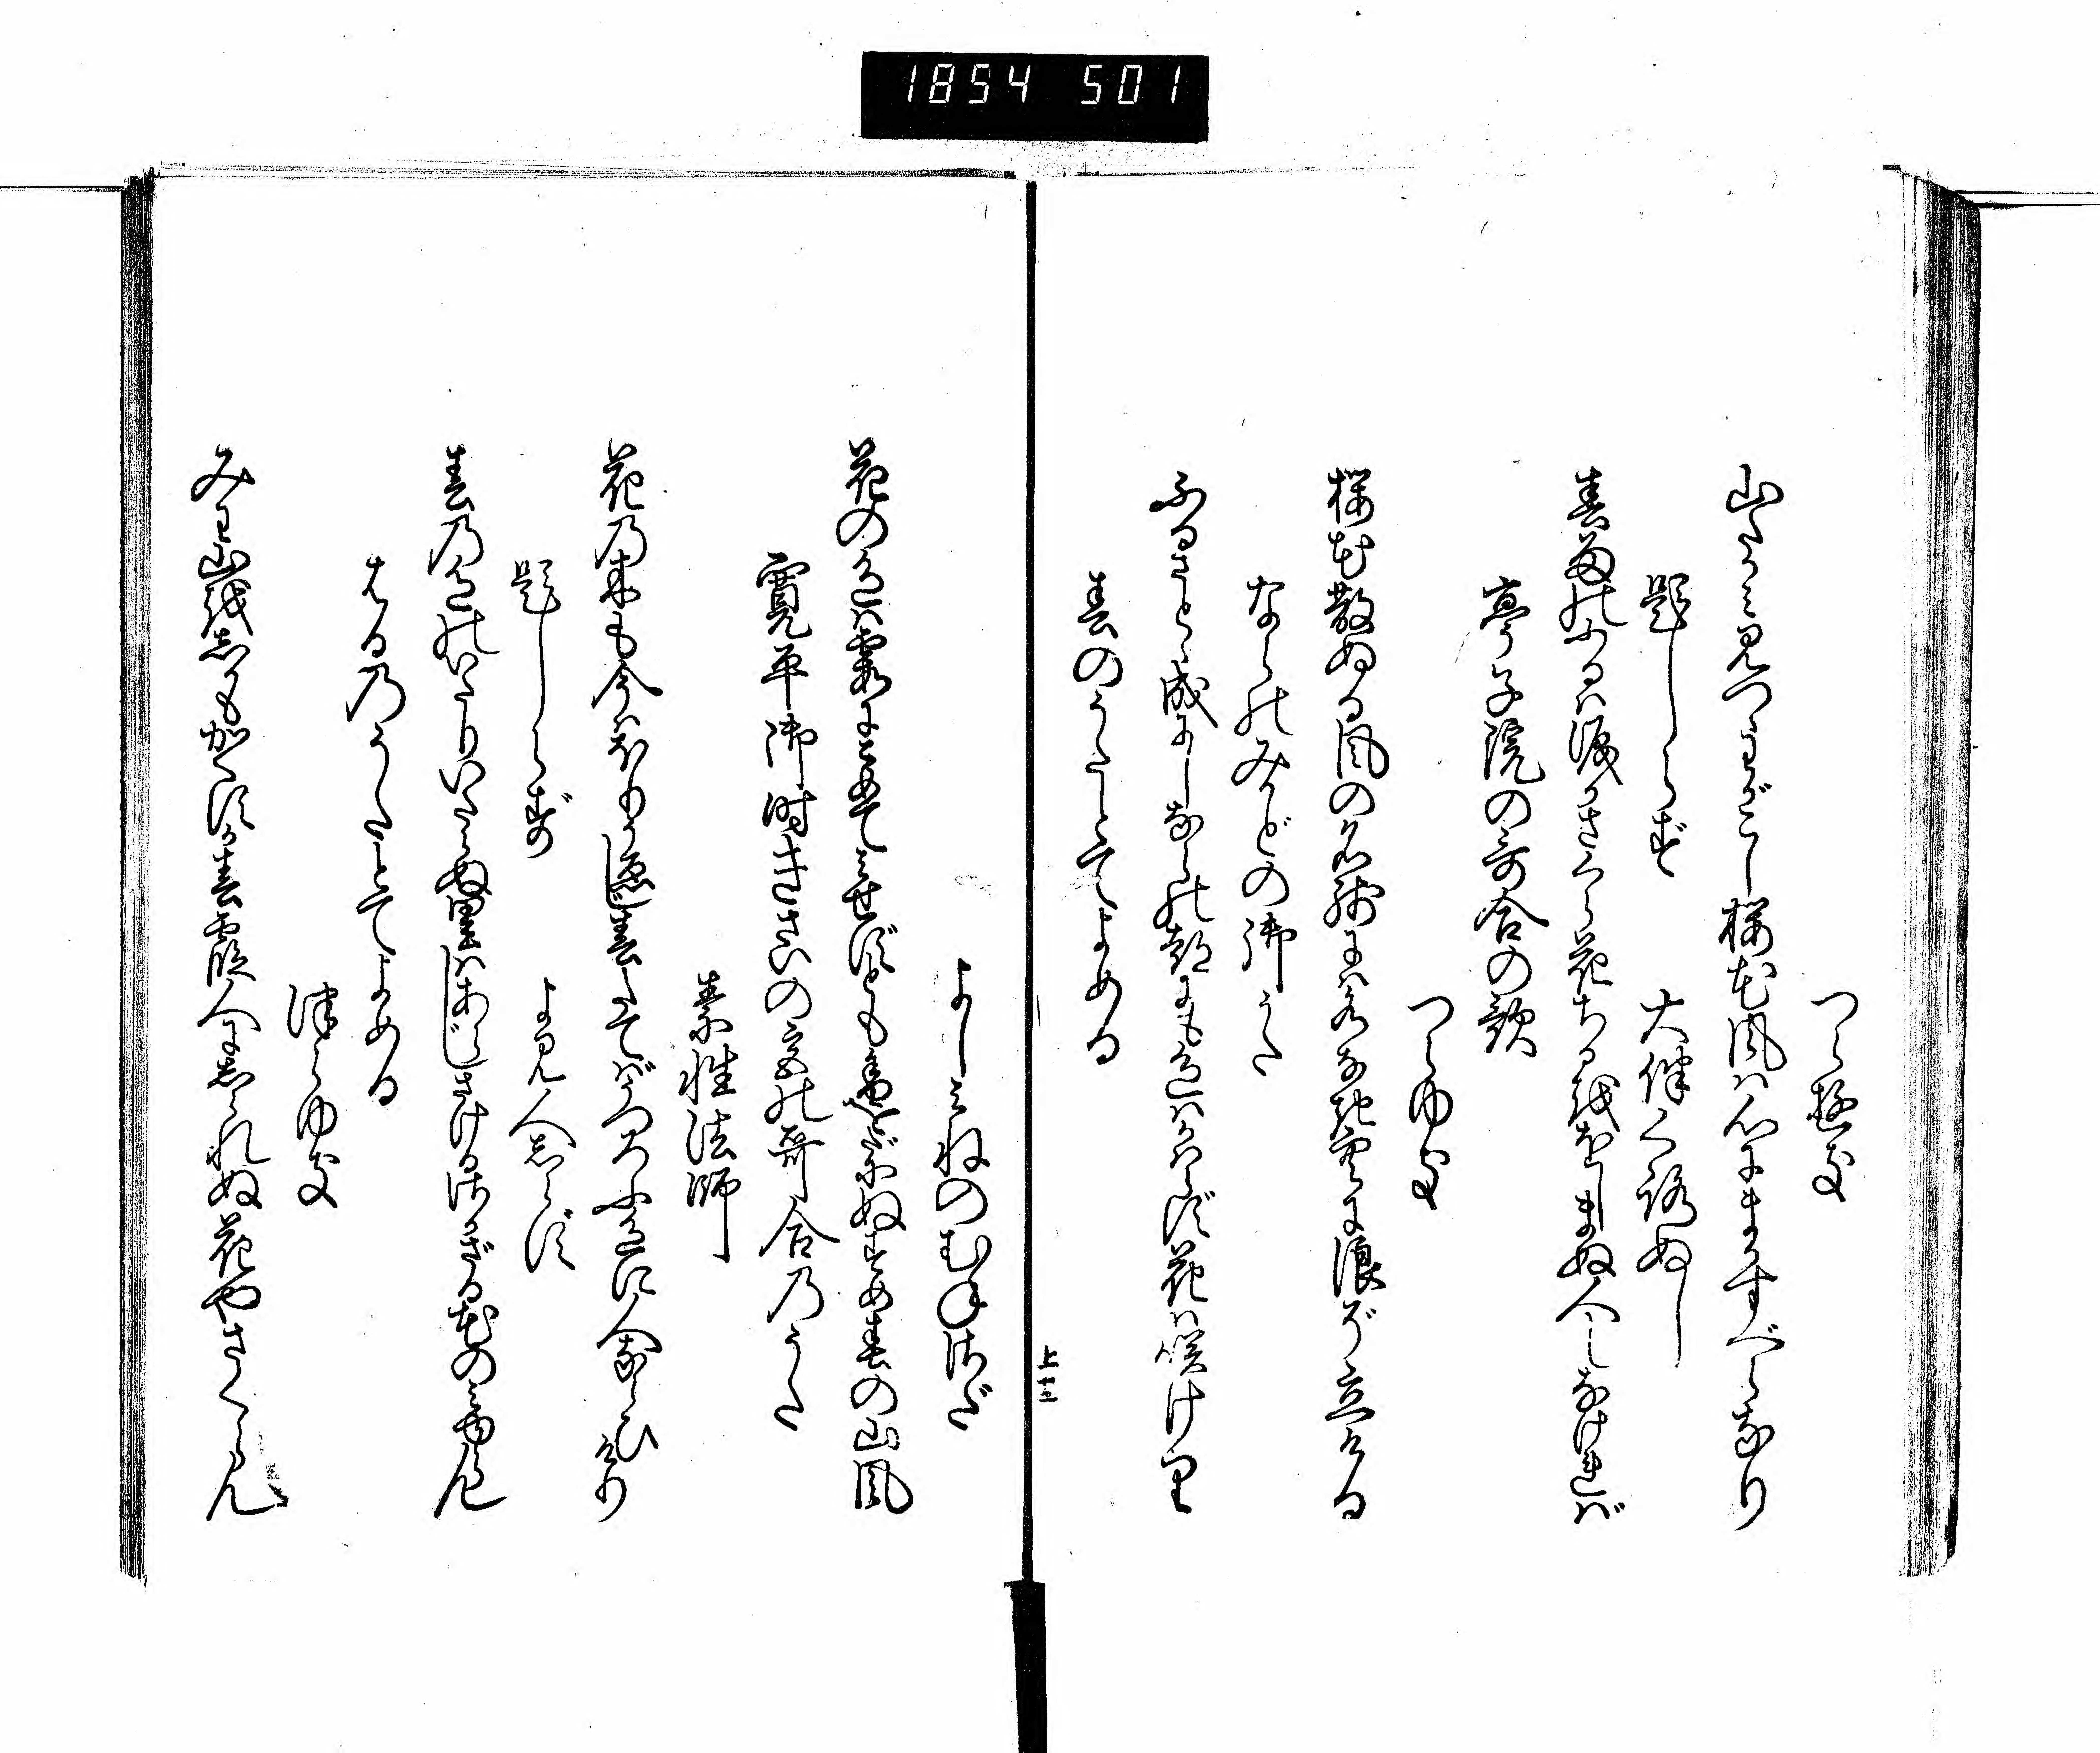 1854 501
つらゆき
山たかみ見つゝわがこし桜花風は心にまかすべらなり
題しらず
大伴くろぬし
春雨のふるは涙かさくら花ちるををしまぬ人しなければ
亭子院の哥合の歌
つらゆき
桜花散ぬる風の名残には水なき空に浪ぞ立ける
ならのみかどの御うた
ふるさとゝ成にしならの都にも色はかはらず花は咲けり
春のうたとてよめる
上十三
よしみねのむねさだ
花の色は霞にこめてみせずとも香をだにぬすめ春の山風
寛平御時きさいの宮の哥合のうた
素性法師
花の木も今はほりうゑじ春たてばうつろふ色に人ならひけり
題しらず
よみ人しらず
春の色のいたりいたらぬ里はあらじさけるさかざる花のみゆらん
はるのうたとてよめる
つらゆき
みわ山をしかもかくすか春霞人にしられぬ花やさくらん